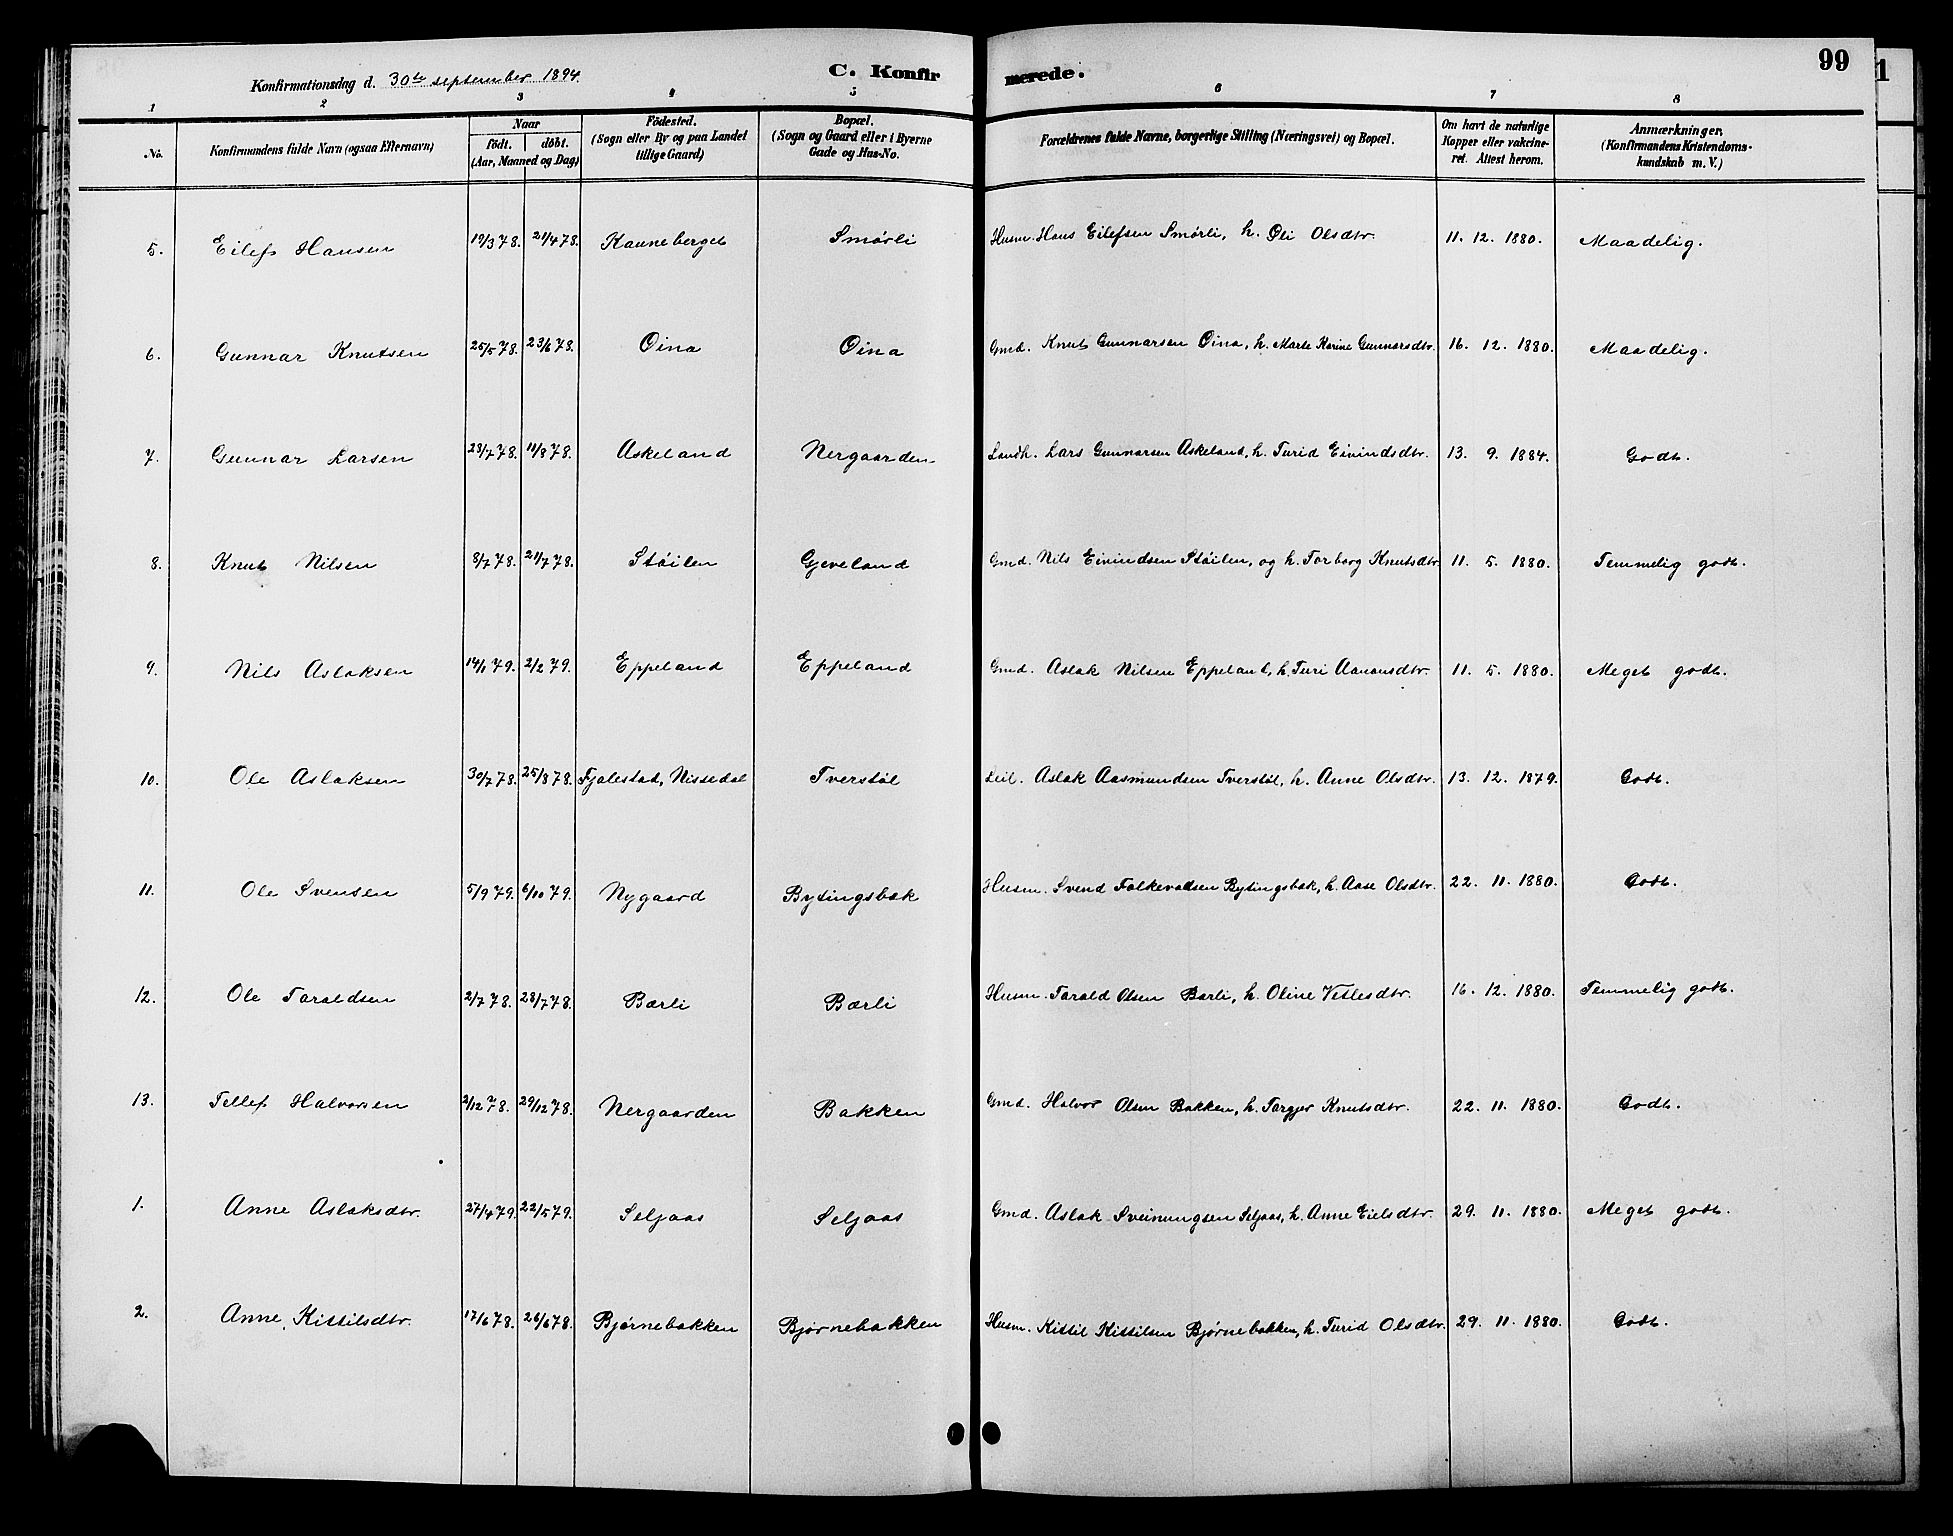 Konfirmationsdag d. 30te september 1894.
C. Konfirmerede.
99
1 2 3 4 5 6 7 8
No. Konfirmandens fulde Navn (ogsaa Efternavn) Naar födt. döbt. (Aar, Maaned og Dag) Födested. (Sogn eller By og paa Landet tillige Gaard) Bopæl. (Sogn og Gaard eller i Byerne Gade og Hus-No. Forældrenes fulde Navne, borgerlige Stilling (Næringsvei) og Bopæl. Om havt de naturlige Kopper eller vakcineret. Attest herom. Anmærkninger. (Konfirmandens Kristendomskundskab m. V.)
5. Eilef Hansen 19/3 78. 21/4 78. Kauneberget Smørli Husm. Hans Eilefsen Smørli, h. Oli Olsdtr. 11. 12. 1880. Maadelig.
6. Gunnar Knutsen 25/5 78. 23/6 78. Oina Oina Gmd. Knut Gunnarsen Oina, h. Marte Karine Gunnarsdtr. 16. 12. 1880. Maadelig.
7. Gunnar Larsen 23/7 78. 11/8 78. Askeland Nergaarden Landh. Lars Gunnarsen Askeland, h. Turid Eivindsdtr. 13. 9. 1884. Godt.
8. Knut Nilsen 8/7 78. 21/7 78. Støilen Gjeveland Gmd. Nils Eivindsen Støilen, og h. Torborg Knutsdtr. 11. 5. 1880. Temmelig godt.
9. Nils Aslaksen 14/1 79. 2/2 79. Eppeland Eppeland Gmd. Aslak Nilsen Eppeland, h. Turi Aanonsdtr. 11. 5. 1880. Meget godt.
10. Ole Aslaksen 30/7 78. 25/8 78. Fjalestad, Nissedal Tverstøl Leil. Aslak Aasmundsen Tverstøl, h. Anne Olsdtr. 13. 12. 1879. Godt.
11. Ole Svensen 5/9 79. 6/10 79. Nygaard Bytingsbæk Husm. Svend Folkevadsen Bytingsbæk, h. Aase Olsdtr. 22. 11. 1880. Godt.
12. Ole Taraldsen 2/7 78. 28/7 78. Bærli Bærli Husm. Tarald Olsen Bærli, h. Oline Vetlesdtr. 16. 12. 1880. Temmelig godt.
13. Tellef Halvorsen 2/12 78. 29/12 78. Nergaarden Bakken Gmd. Halvor Olsen Bakken, h. Torgjer Knutsdtr. 22. 11. 1880. Godt.
1. Anne Aslaksdtr. 27/4 79. 22/5 79. Seljaas Seljaas Gmd. Aslak Sveinungsen Seljaas, h. Anne Eielsdtr. 29. 11. 1880. Meget godt.
2. Anne Kittilsdtr. 17/6 78. 26/6 78. Bjørnebakken Bjørnebakken Husm. Kittil Kittilsen Bjørnebakken, h. Turid Olsdtr. 29. 11. 1880. Godt.